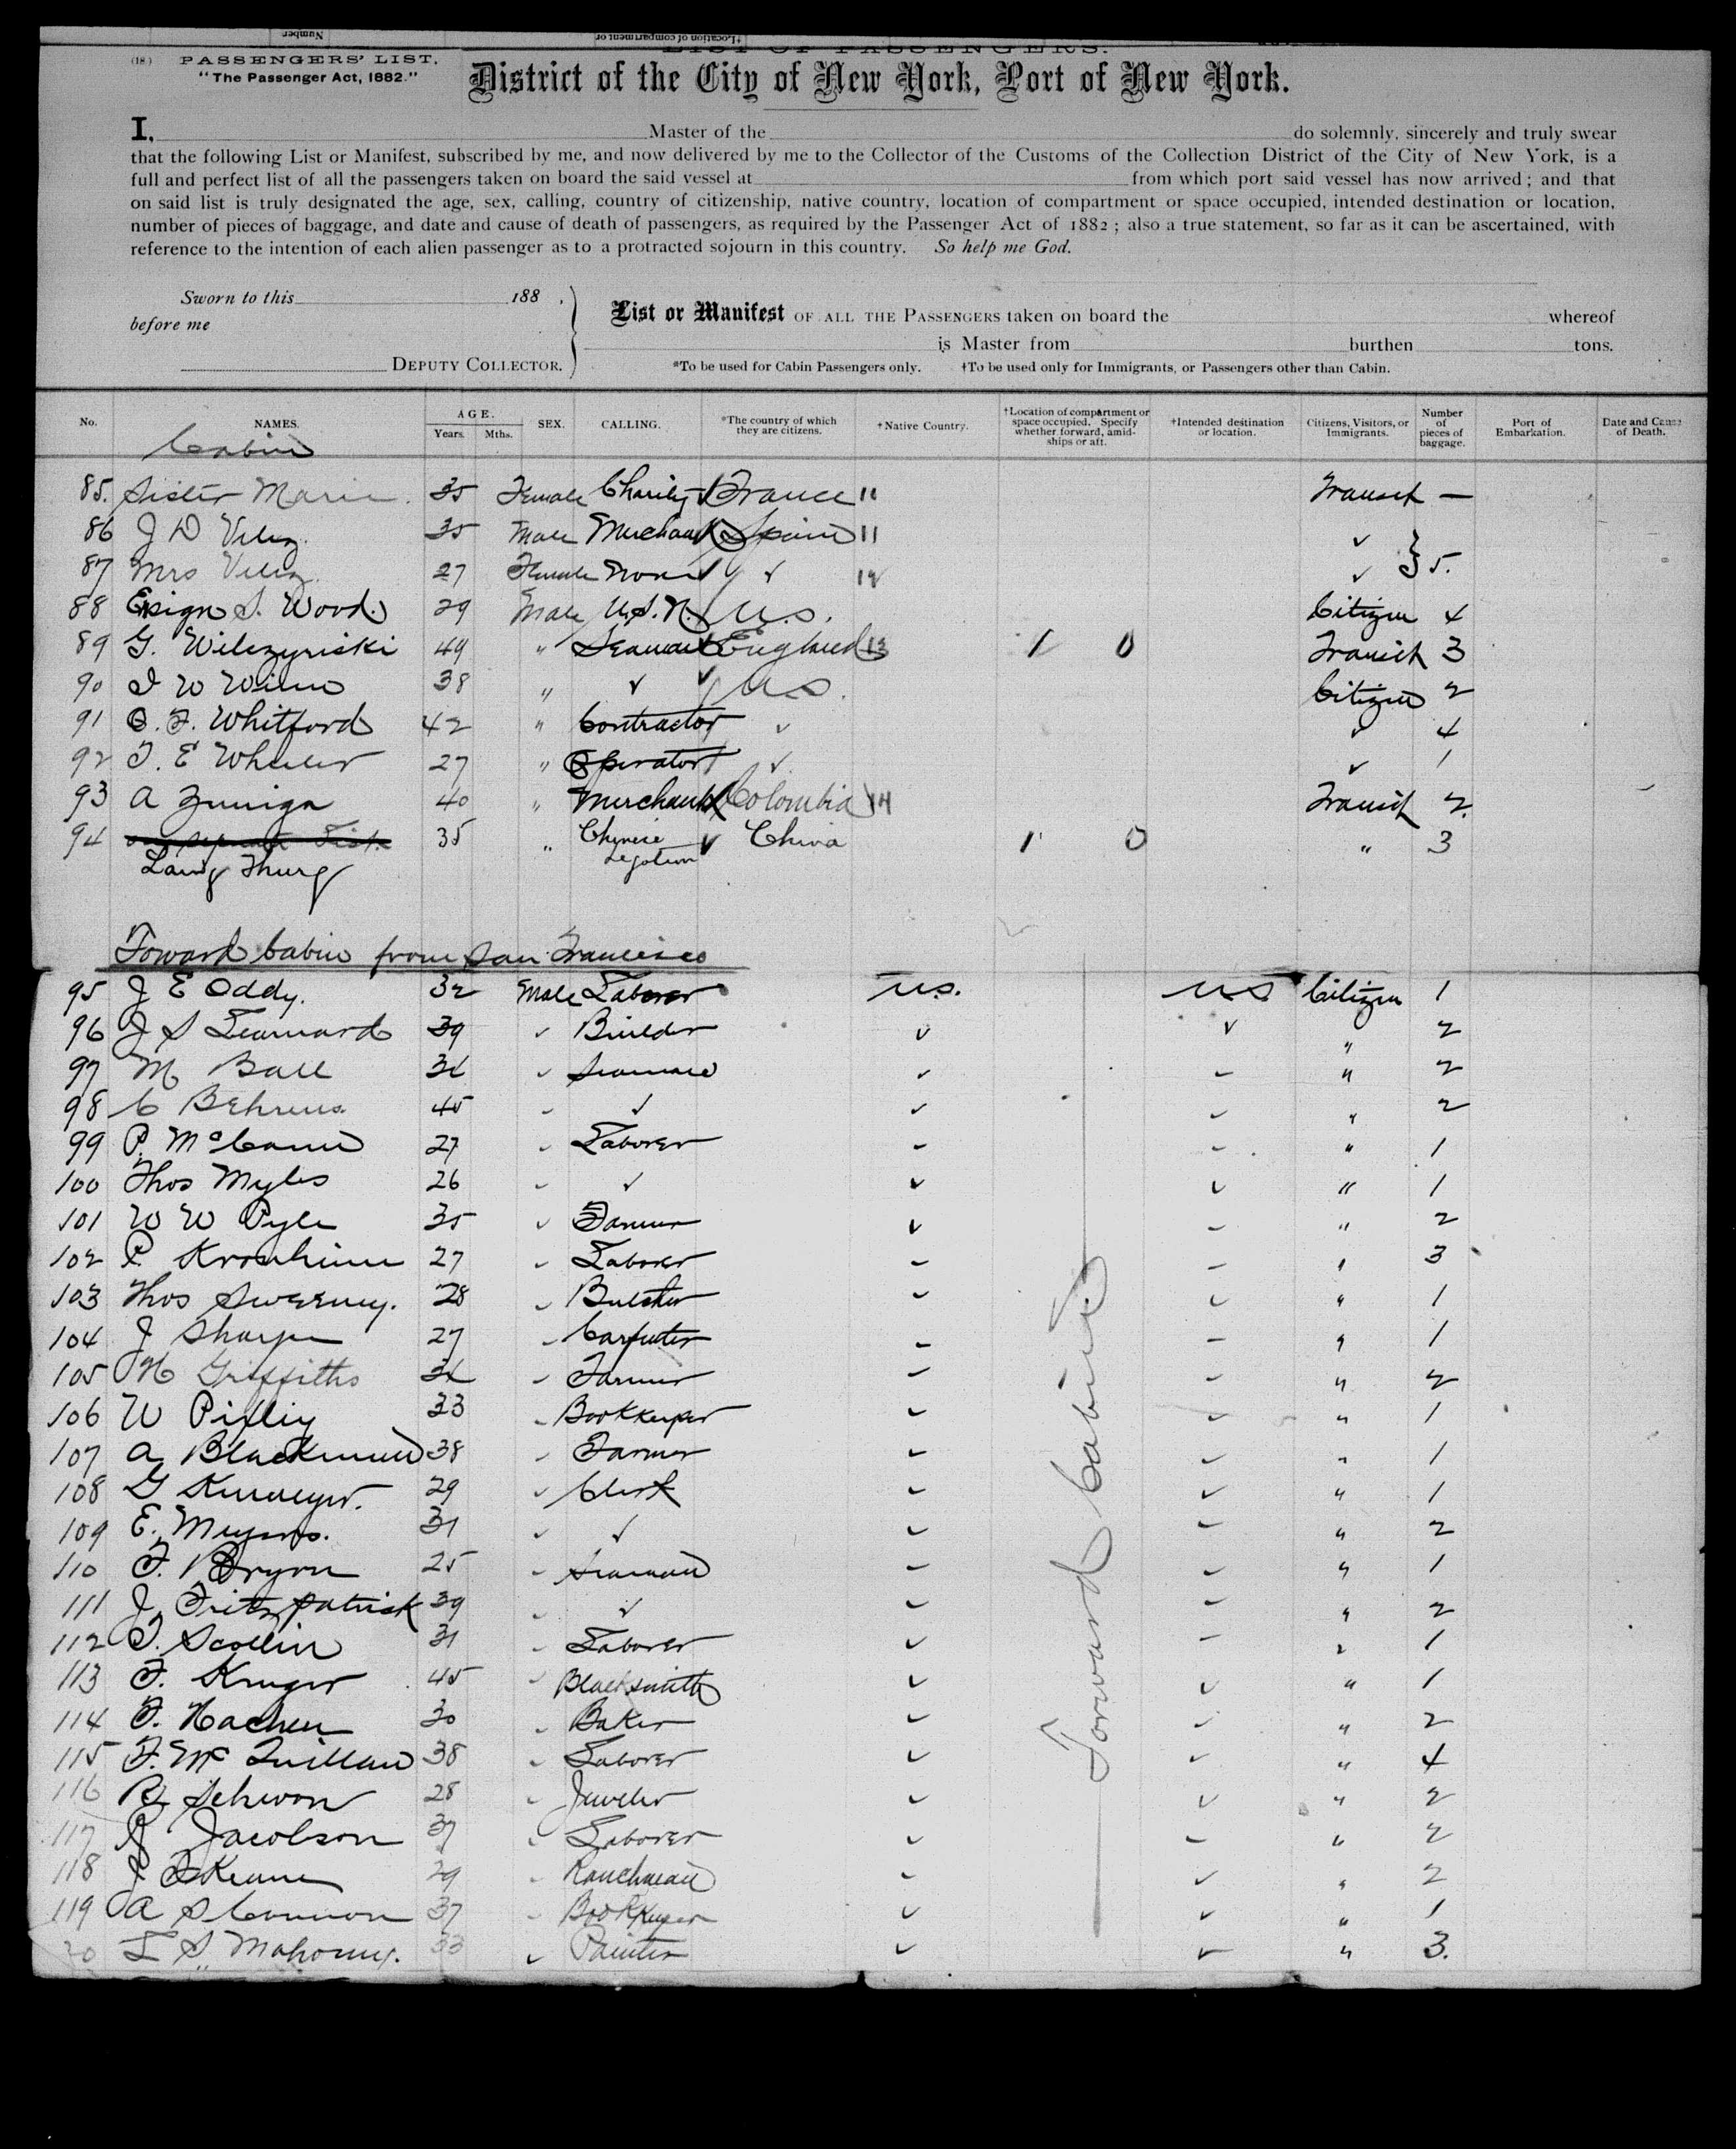 Number
†Location of compartment or
LIST OF PASSENGERS.
(18.) PASSENGERS' LIST.
"The Passenger Act, 1882."
District of the City of New York, Port of New York.
I, Master of the do solemnly, sincerely and truly swear
that the following List or Manifest, subscribed by me, and now delivered by me to the Collector of the Customs of the Collection District of the City of New York, is a
full and perfect list of all the passengers taken on board the said vessel at from which port said vessel has now arrived; and that
on said list is truly designated the age, sex, calling, country of citizenship, native country, location of compartment or space occupied, intended destination or location,
number of pieces of baggage, and date and cause of death of passengers, as required by the Passenger Act of 1882; also a true statement, so far as it can be ascertained, with
reference to the intention of each alien passenger as to a protracted sojourn in this country. So help me God.
Sworn to this 188 .
before me
DEPUTY COLLECTOR.
List or Manifest OF ALL THE PASSENGERS taken on board the whereof
is Master from burthen tons.
*To be used for Cabin Passengers only. †To be used only for Immigrants, or Passengers other than Cabin.
No. NAMES. AGE. Years. Mths. SEX. CALLING. *The country of which they are citizens. †Native Country. †Location of compartment or space occupied. Specify whether forward, amidships or aft. †Intended destination or location. Citizens, Visitors, or Immigrants. Number of pieces of baggage. Port of Embarkation. Date and Cause of Death.
Cabin
85. Sister Marie 35 Female Charity France 11 Transit —
86 J D Velez. 35 Male Merchant Spain 11 ✓
87 Mrs Velez. 27 Female None ✓ ✓ } 5.
88 Ensign S. Wood. 29 Male U.S.N. U.S. Citizen 4
89 G. Wilczynski 49 " Seaman England 13 1 0 Transit 3
90 38 " ✓ U.S. Citizen 2
91 O. F. Whitford 42 " Contractor ✓ ✓ 4
92 T. E Wheeler 27 " Operator ✓ ✓ 1
93 A Zuniga 40 " Merchant Colombia 14 Transit 2.
94 35 " Chinese Legation ✓ China 1 0 " 3
Forward Cabin from San Francisco
95 J E Oddy. 32 Male Laborer U.S. U.S. Citizen 1
96 J S Learnard 39 ✓ Builder ✓ ✓ " 2
97 M Ball ✓ Seaman ✓ - " 2
98 C Behrens 45 - ✓ ✓ - " 2
99 P. McCann 27 - Laborer - - " 1
100 Thos Myles 26 - ✓ ✓ ✓ " 1
101 W W Pyle 35 ✓ Farmer ✓ - " 2
102 P 27 - Laborer - - " 3
103 Thos Sweeney. 28 - Butcher - ✓ " 1
104 J Sharpe 27 - Carpenter - - " 1
105 H Griffiths - Farmer - - " 2
106 W 33 - Bookkeeper - - " 1
107 A Blackman 38 - Farmer - - " 1
108 G 29 ✓ Clerk - ✓ " 1
109 E. Meyers. 31 - ✓ - - " 2
110 F. Bryon 25 - Seaman - - " 1
111 J. Fritzpatrick 39 - ✓ - - " 2
112 T. Scollin 31 - Laborer ✓ - " 1
113 F. Kruger 45 - Blacksmith ✓ ✓ " 1
114 F. Hachen 30 - Baker - - " 2
115 F. Mc Quillan 38 - Laborer ✓ ✓ " 4
116 B. Schwon 28 - Jeweler - ✓ " 2
117 J Jacobson 37 - Laborer - - " 2
118 J F Keane 29 - Ranchman - ✓ " 2
119 A S Cannon 37 - Bookkeeper ✓ ✓ " 1
20 L S Mahoney. 33 ✓ Painter ✓ - " 3.
Forward Cabin